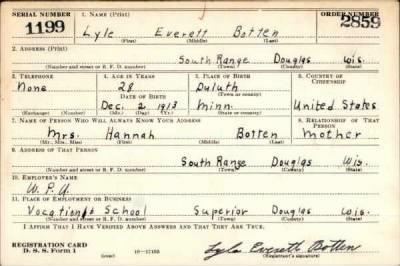 SERIAL NUMBER 1. NAME (Print) ORDER NUMBER
1199 Lyle Everett Botten 2859
(First) (Middle) (Last)
2. ADDRESS (Print)
South Range Douglas Wis.
(Number and street or R. F. D. number) (Town) (County) (State)
3. TELEPHONE 4. AGE IN YEARS 5. PLACE OF BIRTH 6. COUNTRY OF CITIZENSHIP
None 28 Duluth
DATE OF BIRTH (Town or county)
Dec. 2 1913 Minn. United States
(Exchange) (Number) (Mo.) (Day) (Yr.) (State or country)
7. NAME OF PERSON WHO WILL ALWAYS KNOW YOUR ADDRESS 8. RELATIONSHIP OF THAT PERSON
Mrs. Hannah Botten mother
(Mr., Mrs., Miss) (First) (Middle) (Last)
9. ADDRESS OF THAT PERSON
South Range Douglas Wis.
(Number and street or R. F. D. number) (Town) (County) (State)
10. EMPLOYER'S NAME
W. P. A.
11. PLACE OF EMPLOYMENT OR BUSINESS
Vocational School Superior Douglas Wis.
(Number and street or R. F. D. number) (Town) (County) (State)
I AFFIRM THAT I HAVE VERIFIED ABOVE ANSWERS AND THAT THEY ARE TRUE.
REGISTRATION CARD
D. S. S. Form 1 (over) 16—17105 Lyle Everett Botten
(Registrant's signature)